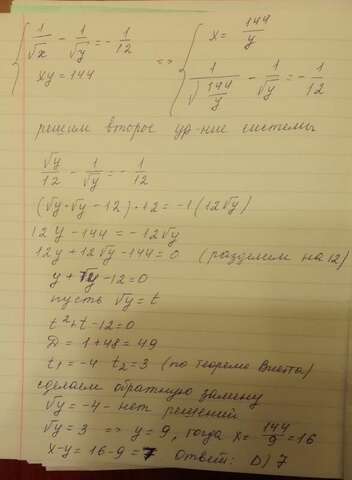 { 1/√x - 1/√y = - 1/12 => { x = 144/y
{ xy = 144 { 1/√(144/y) - 1/√y = - 1/12
решим второе ур-ние системы
√y/12 - 1/√y = - 1/12
(√y·√y - 12)·12 = -1(12√y)
12y - 144 = -12√y
12y + 12√y - 144 = 0 (разделим на 12)
y + √y - 12 = 0
пусть √y = t
t² + t - 12 = 0
D = 1 + 48 = 49
t₁ = -4 t₂ = 3 (по теореме Виета)
сделаем обратную замену
√y = -4 - нет решений
√y = 3 => y = 9, тогда x = 144/9 = 16
x - y = 16 - 9 = 7 Ответ: D) 7